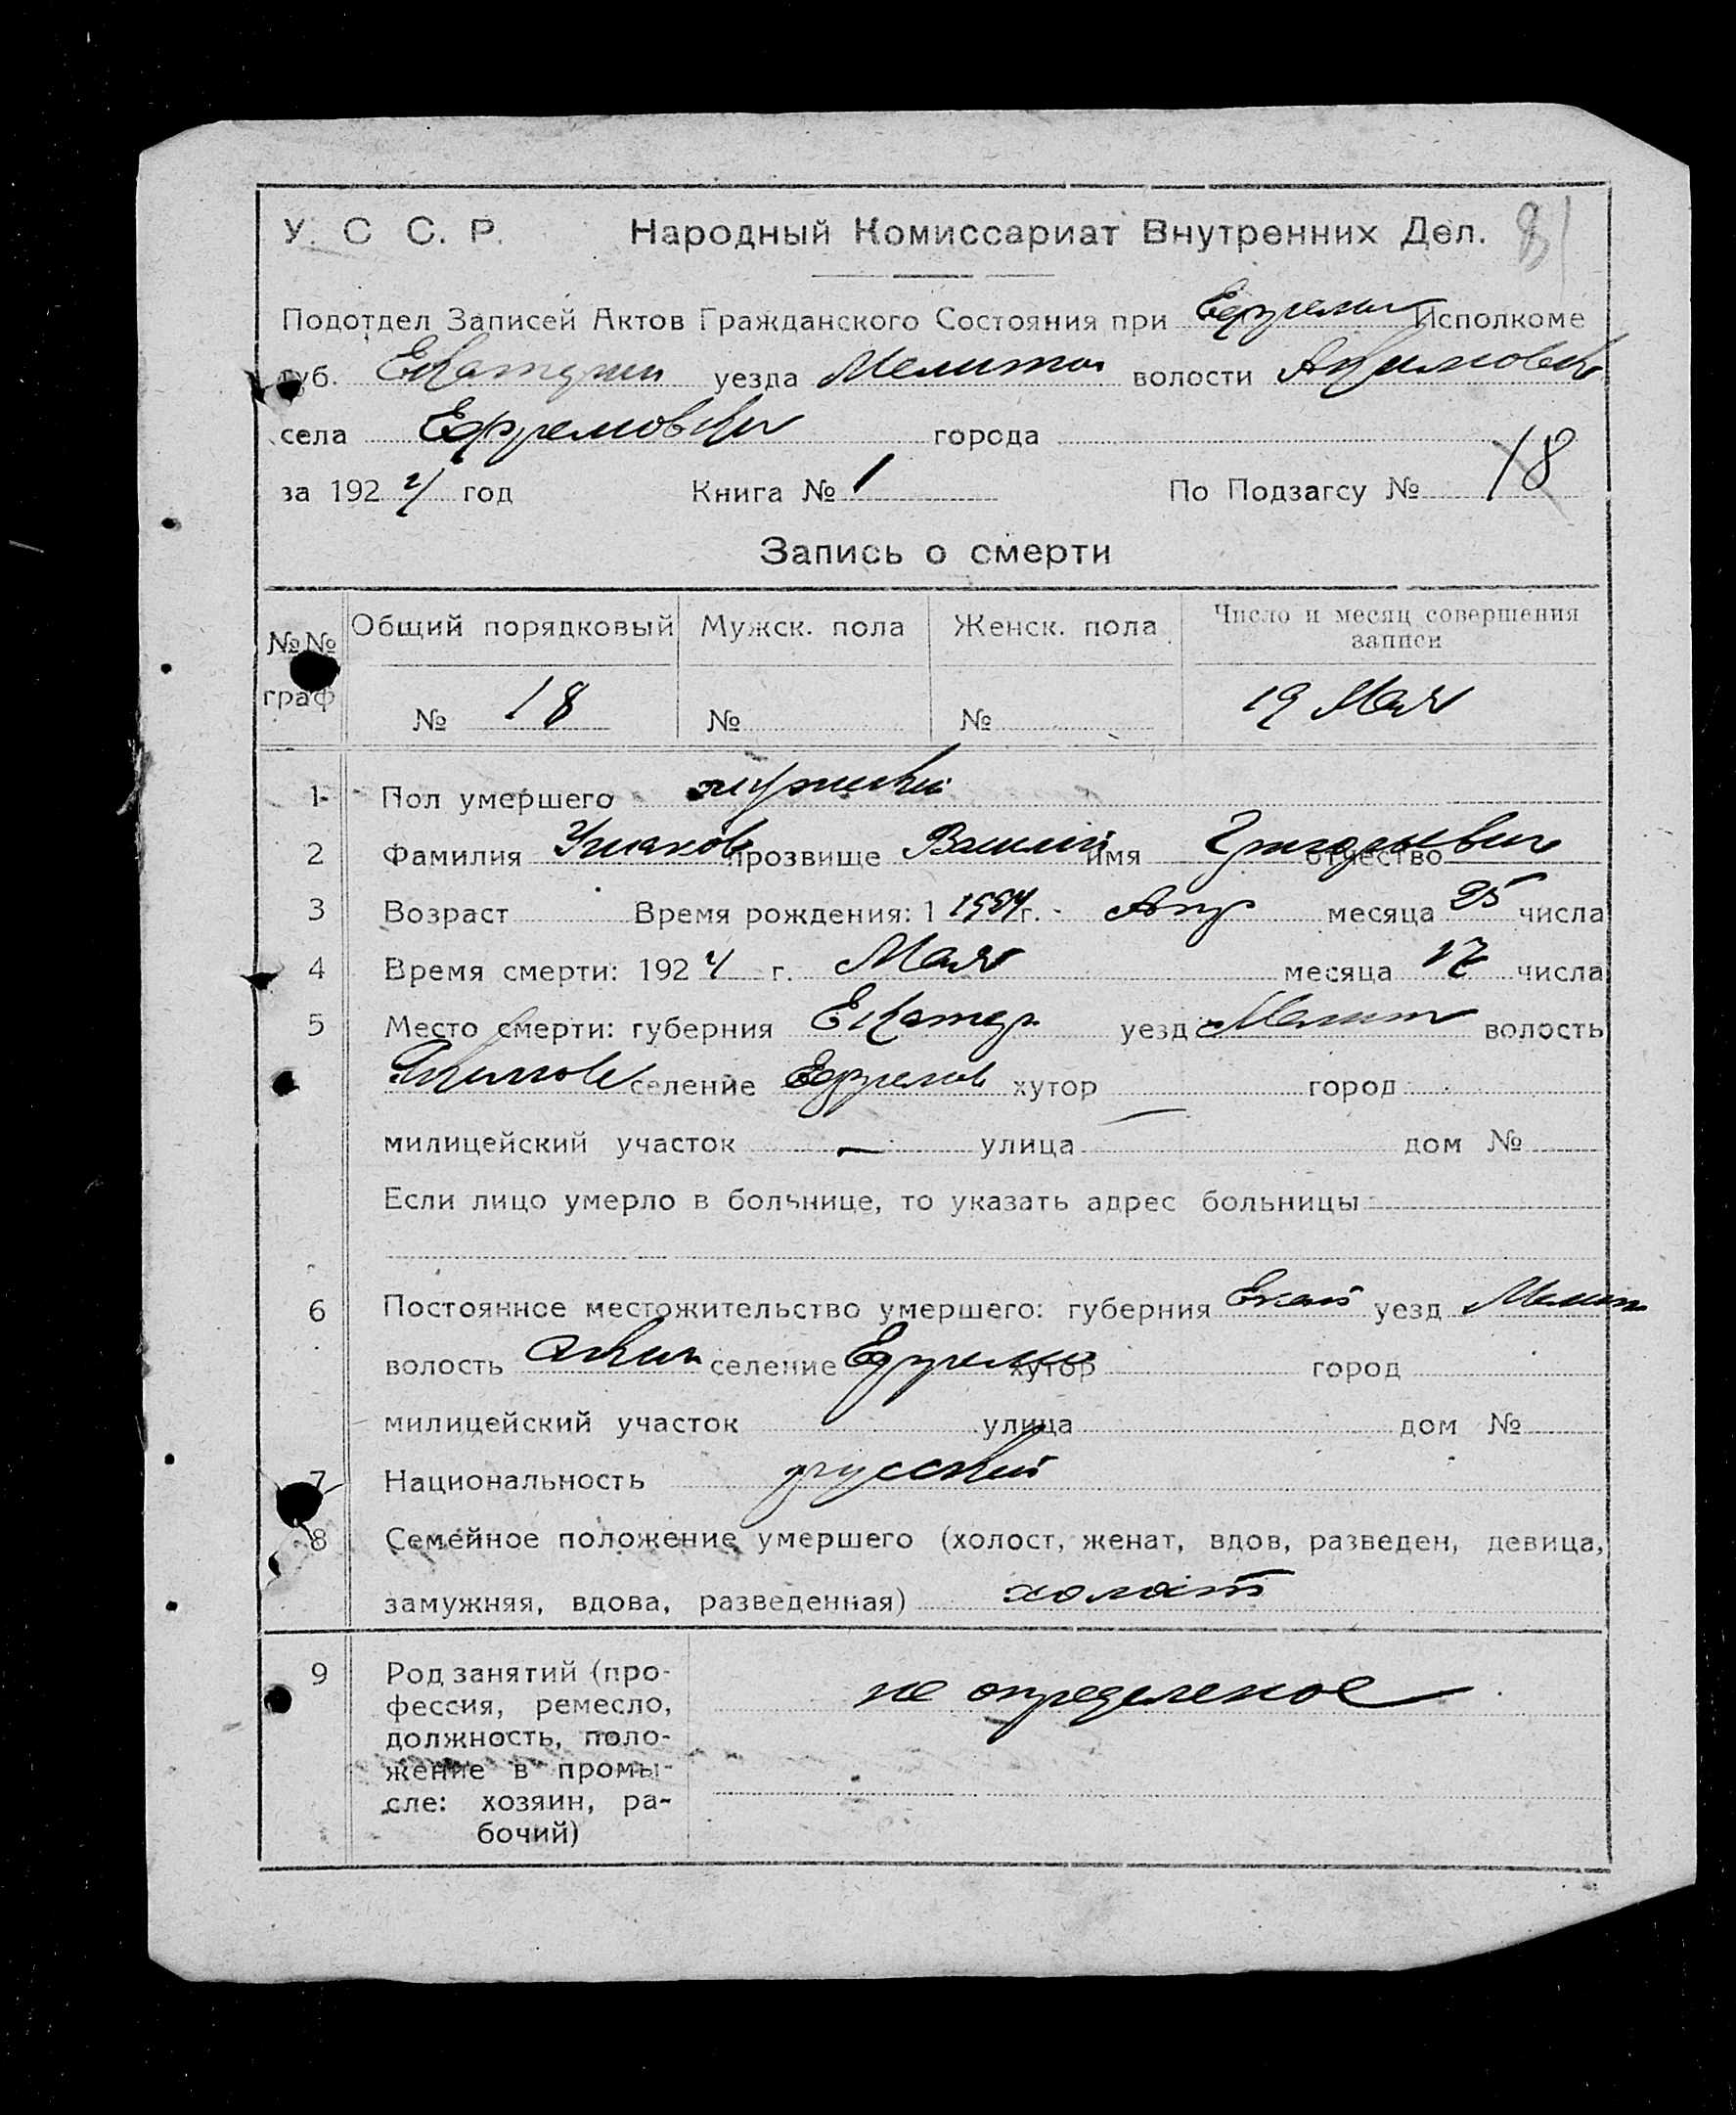 У. С С. Р. Народный Комиссариат Внутренних Дел. 81
Подотдел Записей Актов Гражданского Состояния при Ефремов Исполкоме
губ. Екатерин уезда Мелитоп волости Акимовск
села Ефремовки города
за 1924 год Книга № 1 По Подзагсу № 18
Запись о смерти
№№ граф Общий порядковый Мужск. пола Женск. пола Число и месяц совершения записи
№ 18 № № 19 Мая
1 Пол умершего мужский
2 Фамилия Ушаков прозвище Василий имя Григорьевич отчество
3 Возраст Время рождения: 1 г. - Апр месяца 25 числа
4 Время смерти: 1924 г. Мая месяца 17 числа
5 Место смерти: губерния Екатер. уезд Мелит волость
Акимов селение Ефремов хутор город
милицейский участок — улица — дом №
Если лицо умерло в больнице, то указать адрес больницы
6 Постоянное местожительство умершего: губерния Екат уезд Мелит
волость Аким селение Ефремо хутор город
милицейский участок улица дом №
7 Национальность русский
8 Семейное положение умершего (холост, женат, вдов, разведен, девица,
замужняя, вдова, разведенная) холост
9 Род занятий (про-
фессия, ремесло, не определеное
должность, поло-
жение в промы-
сле: хозяин, ра-
бочий)